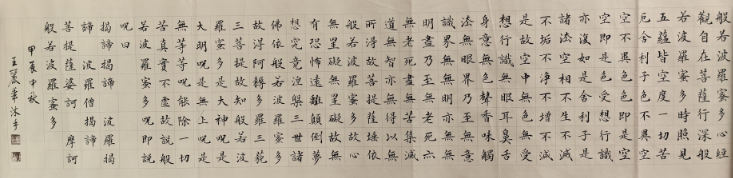 般若波羅蜜多心經
觀自在菩薩行深般
若波羅蜜多時照見
五蘊皆空度一切苦
厄舍利子色不異空
空不異色色即是空
空即是色受想行識
亦復如是舍利子是
諸法空相不生不滅
不垢不淨不增不減
是故空中無色無受
想行識無眼耳鼻舌
身意無色聲香味觸
法無眼界乃至無意
識界無無明亦無無
明盡乃至無老死亦
無老死盡無苦集滅
道無智亦無得以無
所得故菩提薩埵依
般若波羅蜜多故心
無罣礙無罣礙故無
有恐怖遠離顛倒夢
想究竟涅槃三世諸
佛依般若波羅蜜多
故得阿耨多羅三藐
三菩提故知般若波
羅蜜多是大神呪是
大明呪是無上呪是
無等等呪能除一切
苦真實不虛故說般
若波羅蜜多呪即說
呪曰
揭諦揭諦 波羅揭
諦 波羅僧揭諦
菩提薩婆訶 摩訶
般若波羅蜜多
甲辰中秋
王 沐手